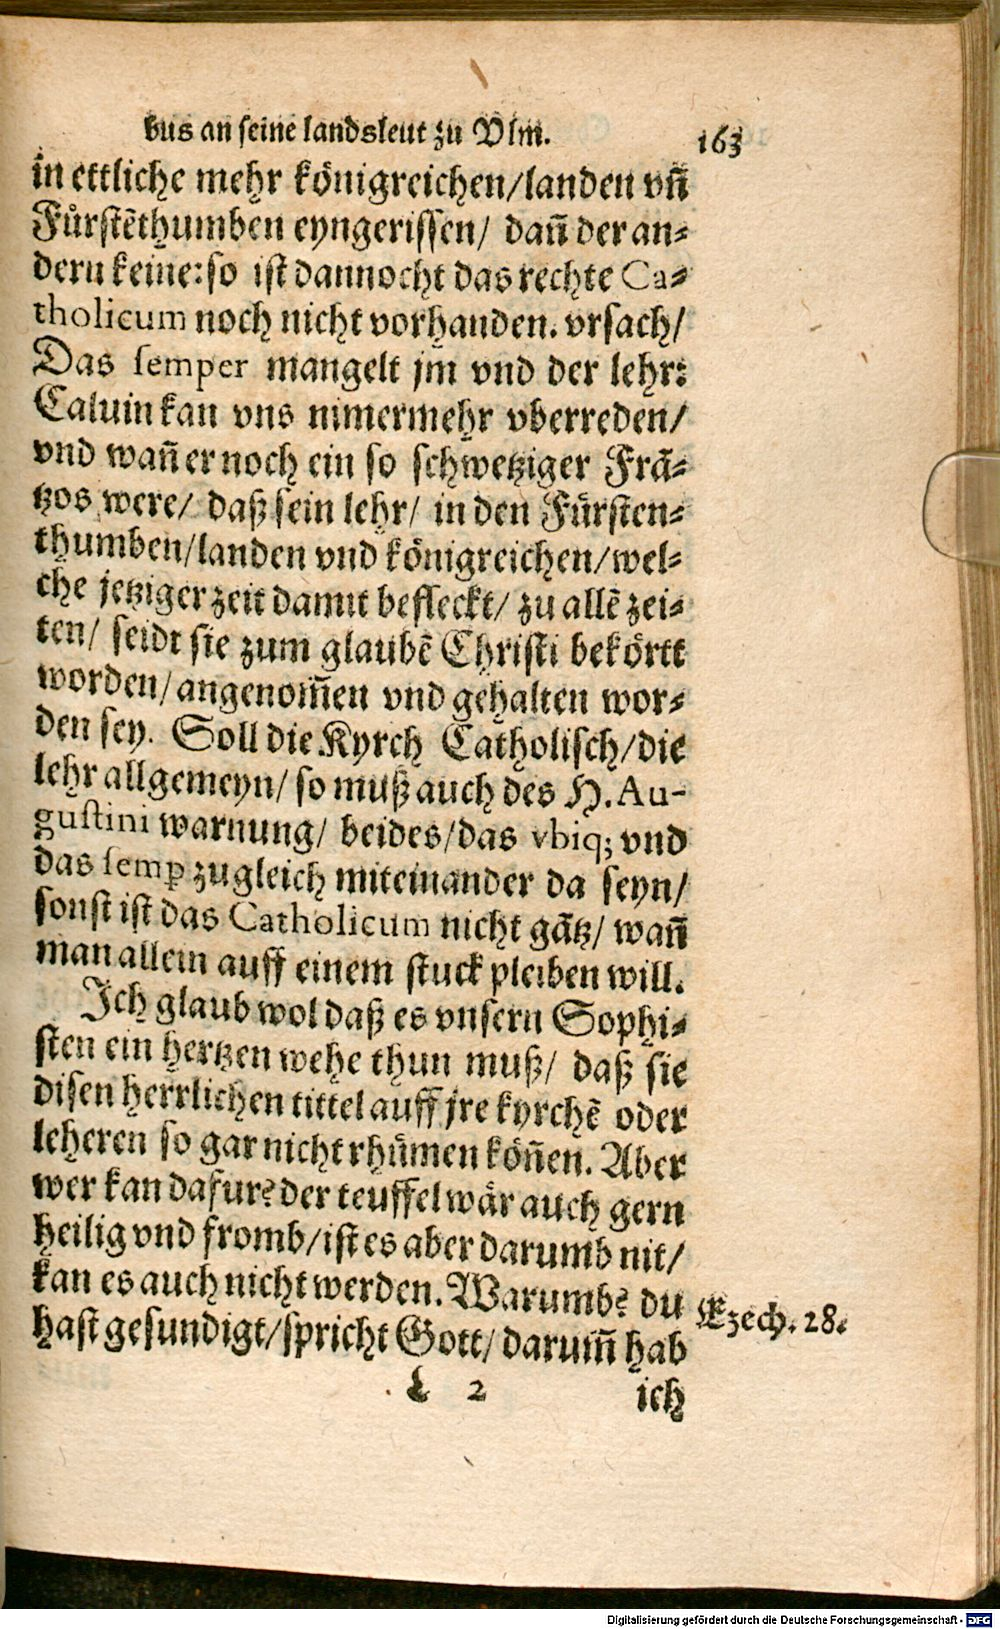 bus an seine landsleut zu Vlm. 163
in ettliche mehr königreichen/landen vñ
Fürstēthumben eyngerissen/ dañ der an⸗
dern keine:so ist dannocht das rechte Ca⸗
tholicum noch nicht vorhanden. vrsach/
Das semper mangelt jm vnd der lehr:
Caluin kan vns nimermehr vberreden/
vnd wañ er noch ein so schwetziger Frā⸗
tzos were/ daß sein lehr/ in den Fürsten⸗
thumben/landen vnd königreichen/wel⸗
che jetziger zeit damit befleckt/ zu allē zei⸗
ten/ seidt sie zum glaubē Christi bekörtt
worden/angenom̄en vnd gehalten wor⸗
den sey. Soll die Kyrch Catholisch/die
lehr allgemeyn/ so muß auch des H. Au-
gustini warnung/ beides/das vbiq; vnd
das semꝑ zugleich miteinander da seyn/
sonst ist das Catholicum nicht gātz/ wañ
man allein auff einem stuck pleiben will.
Ich glaub wol daß es vnsern Sophi⸗
sten ein hertzen wehe thun muß/ daß sie
disen herrlichen tittel auff jre kyrchē oder
leheren so gar nicht rhümen köñen. Aber
wer kan dafur? der teuffel wär auch gern
heilig vnd fromb/ist es aber darumb nit/
kan es auch nicht werden. Warumb? du
hast gesundigt/spricht Gott/ darum̄ hab
Ezech. 28.
L 2 ich
Digitalisierung gefördert durch die Deutsche Forschungsgemeinschaft - DFG